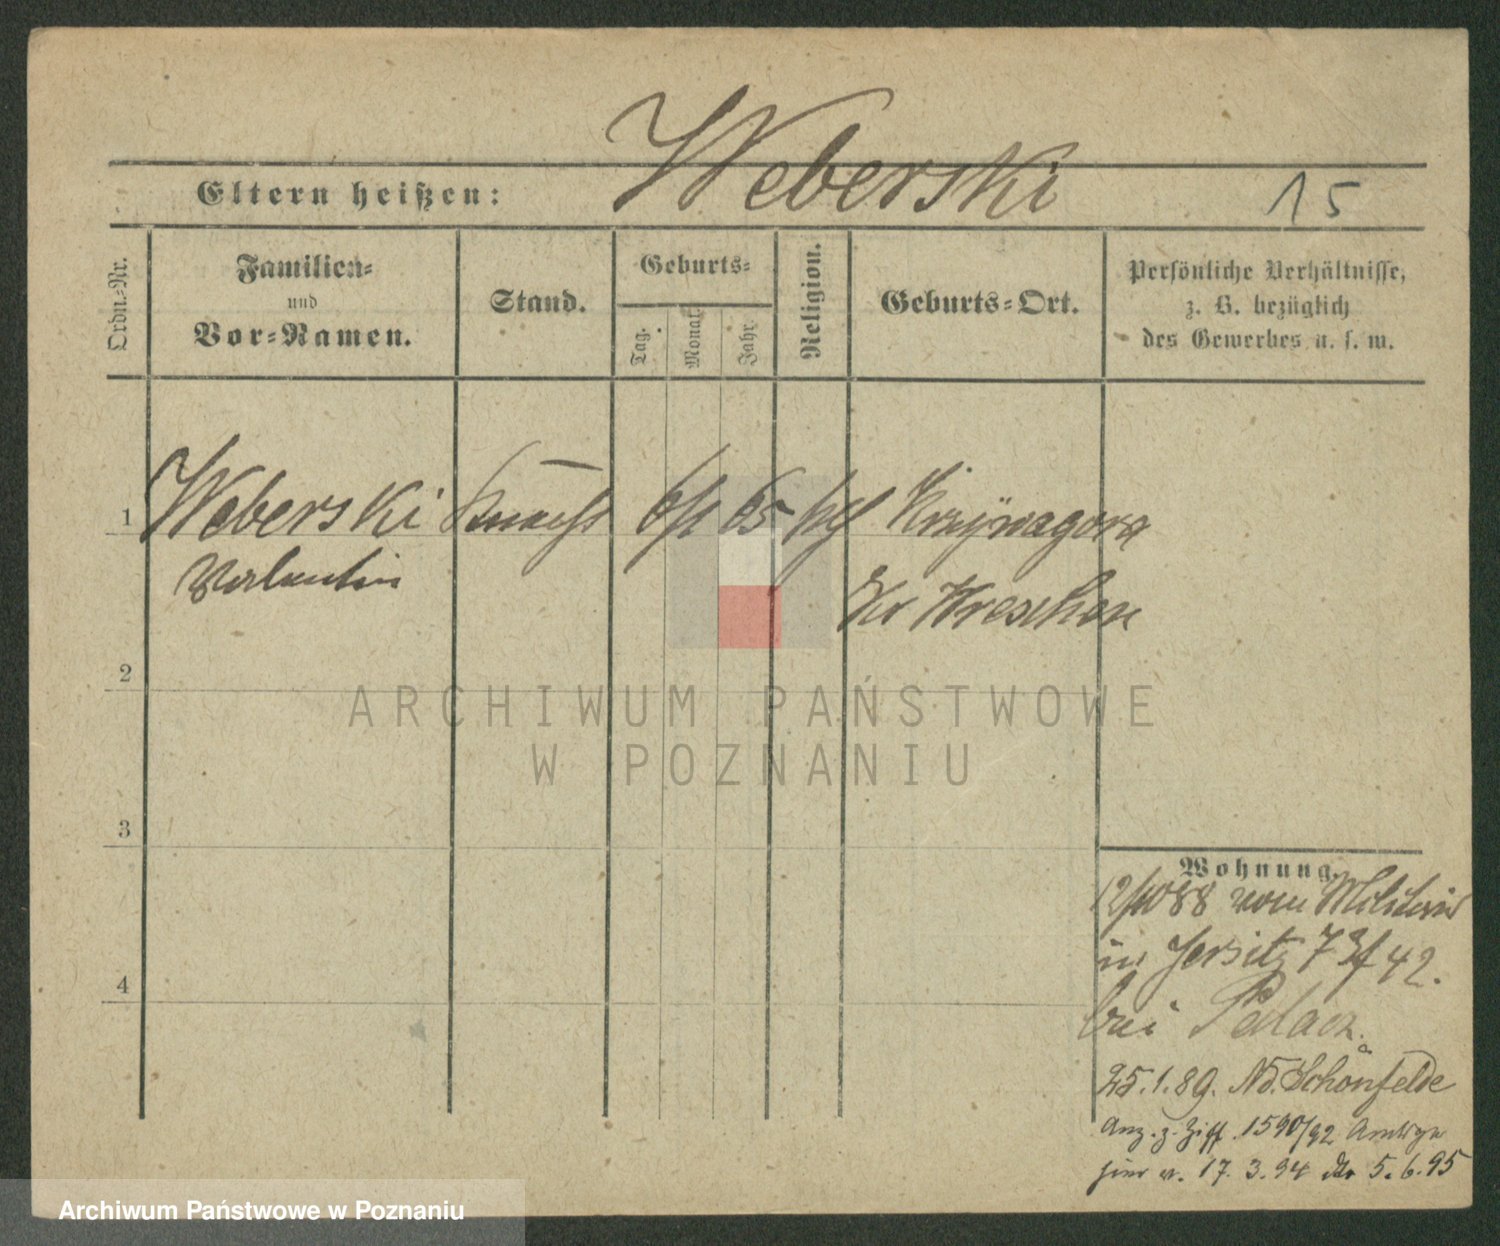 Weberski
Eltern heißen:
15
Ordn.-Nr.
Familien-
und
Vor-Namen.
Stand.
Geburts-
Tag.
Monat.
Jahr.
Religion.
Geburts-Ort.
Persönliche Verhältnisse,
z. B. bezüglich
des Gewerbes u. s. w.
1
Weberski
Knecht
65
Valentin
Kr Wreschen
2
ARCHIWUM PAŃSTWOWE
W POZNANIU
3
Wohnung.
88 vom Militair
in Jersitz 42.
4
bei
25.1.89. Nd. Schönfelde
Anz. z. Ziff. 1590/92
hier v. 17.3.94 5.6.95
Archiwum Państwowe w Poznaniu